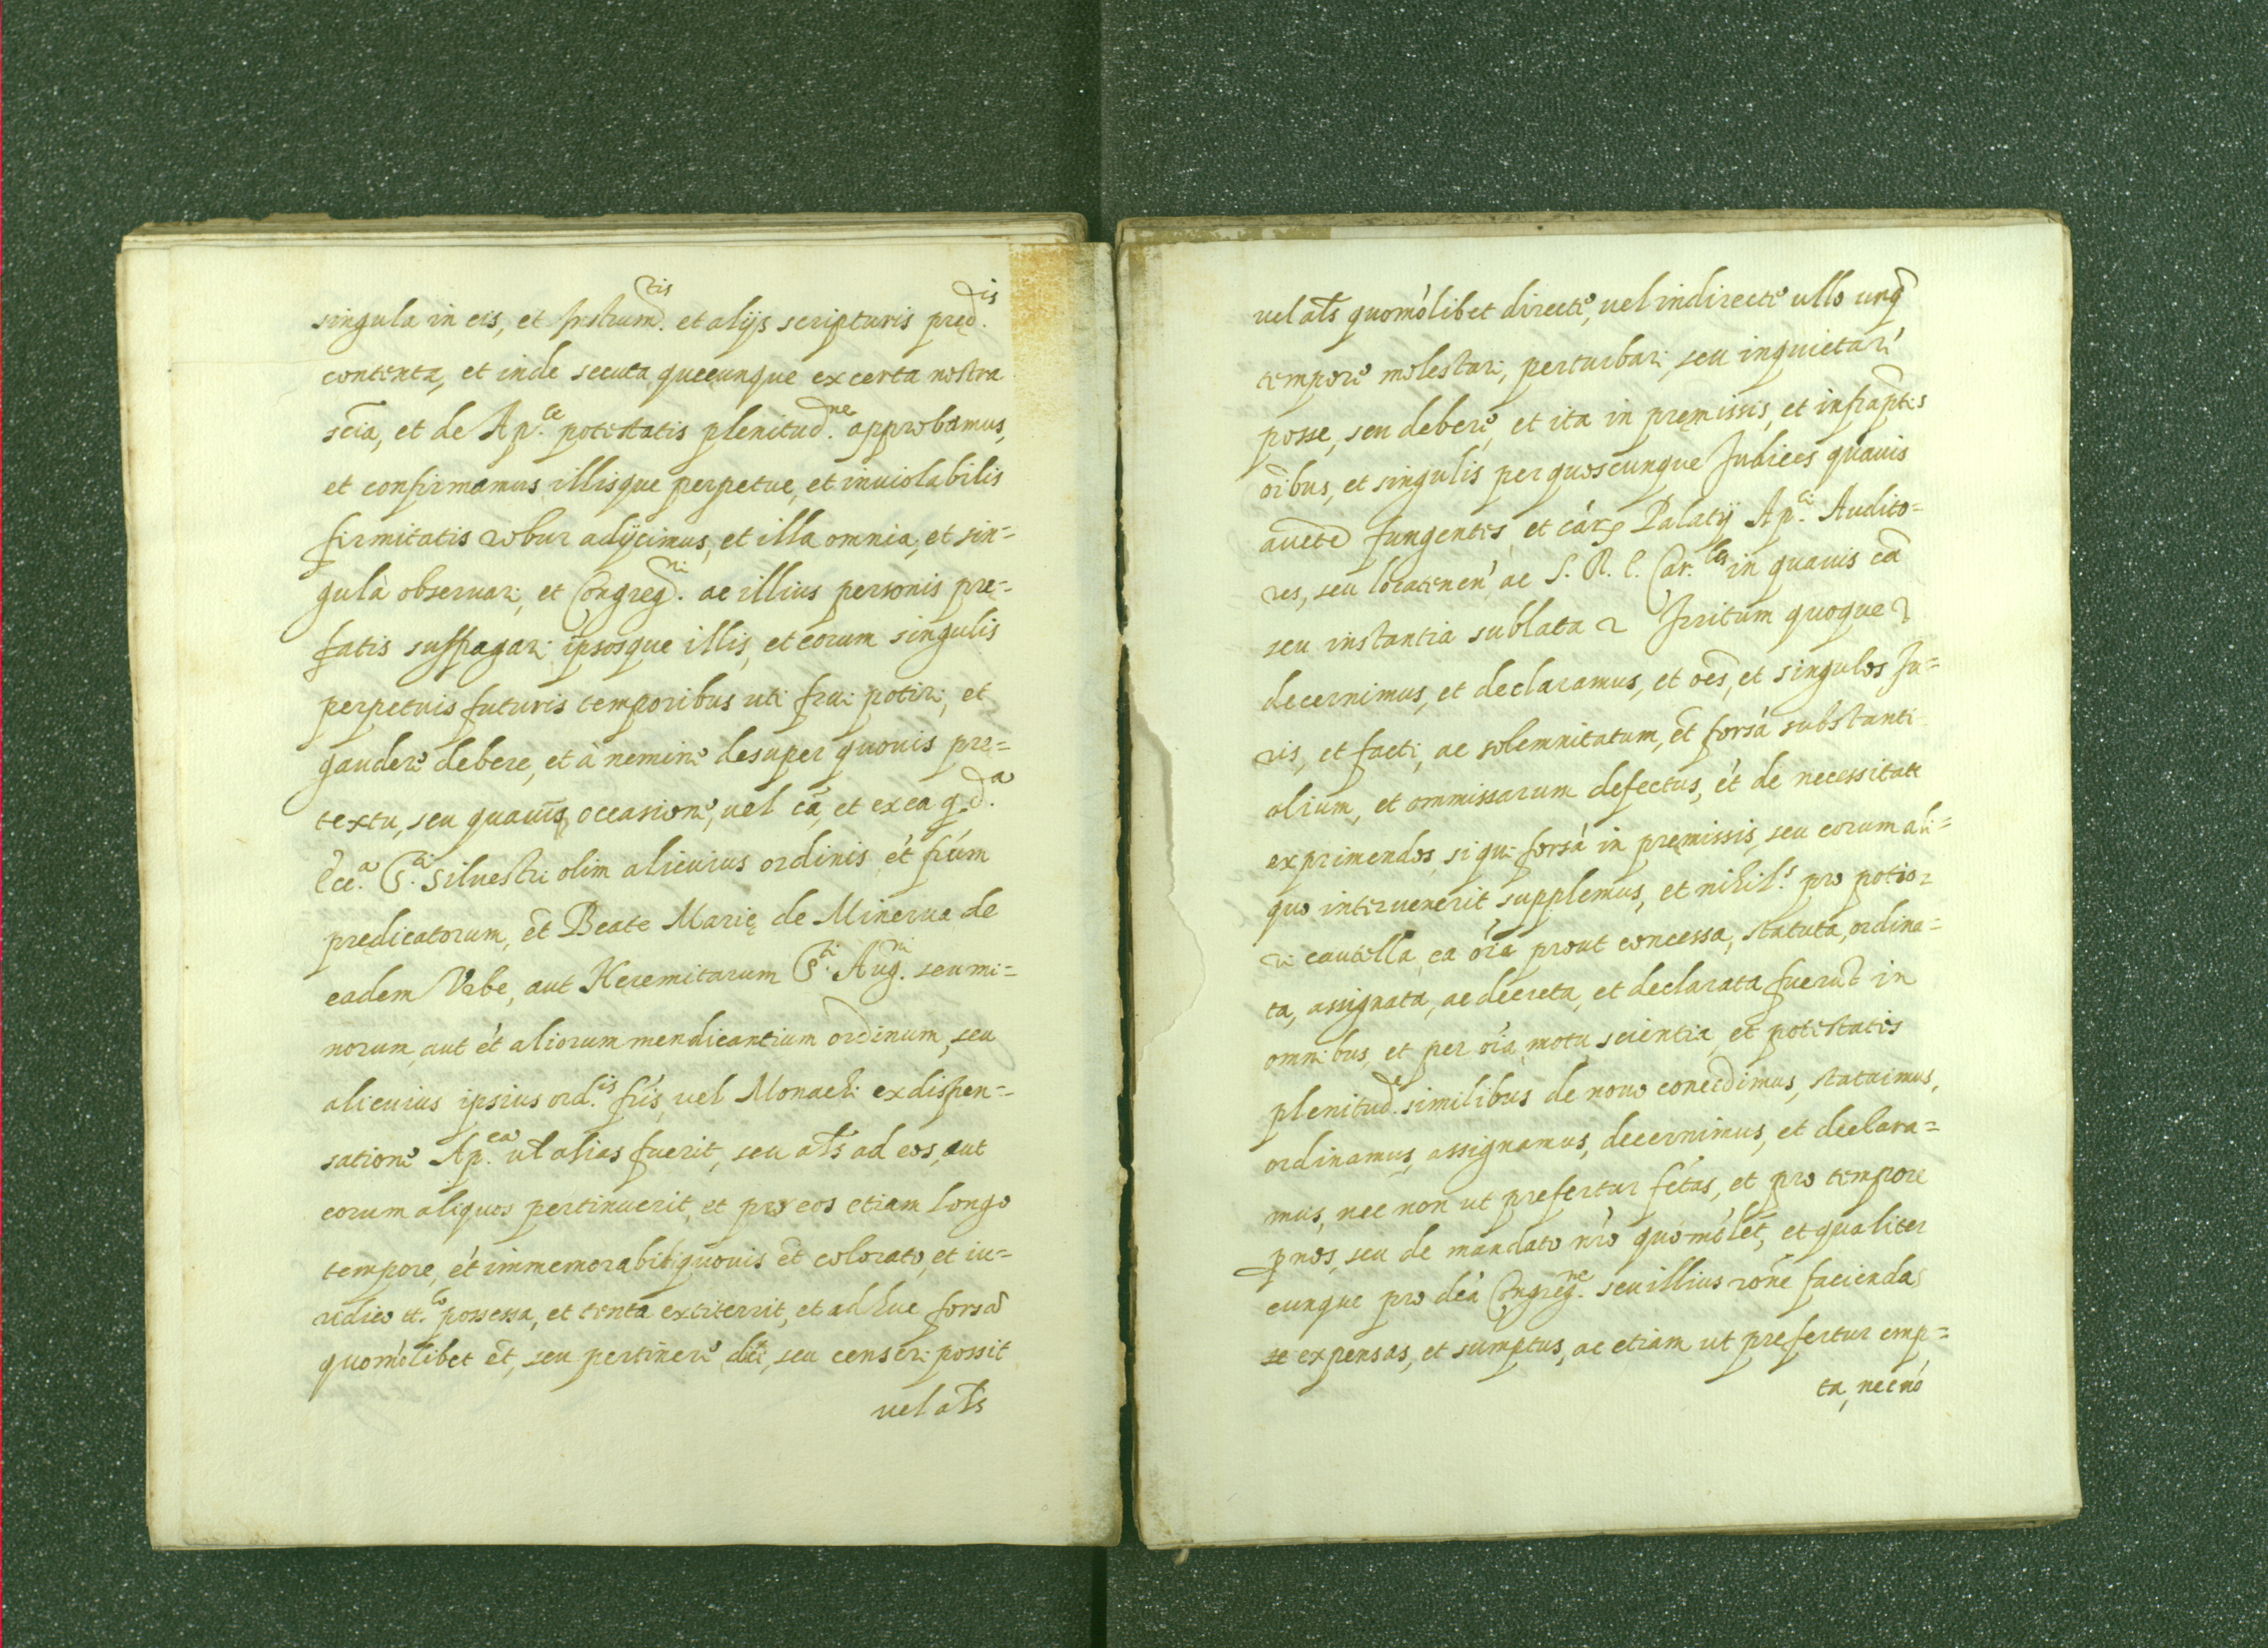 singula in eis, et Instrum.tis et alijs scripturis pred.is
contenta, et inde secuta quęcunque ex certa nostra
sciã, et de Ap.ce potestatis plenitud.ne approbamus,
et confirmamus, illisque perpetue, et inuiolabilis
firmitatis robur adijcimus, et illa omnia, et sin=
gula obseruari, et Congreg.ni ac illius personis pre=
fatis suffragari ipsosque illis, et eorum singulis
perpetuis futuris temporibus uti frui potiri, et
gaudere debere, et à nemine desuper quouis prę=
textu, seu quauis occasione, uel cã, et ex ea q.d.a
Ecc.a S.ti Siluestri olim alicuius ordinis, ét frúm
prędicatorum, et̃ Beate Marię de Minerua de
eadem Vrbe, aut Heremitarum S.ti Aug.ni seu mi=
norum, aut ét aliorum mendicantium ordinum, seu
alicuius ipsius ord.is frís, uel Monachi ex dispen=
satione Ap.ca ul alias fuerit, seu als ad eos, aut
eorum aliquos pertinuerit, et pro eos etiam longo
tempore, ét immemorabili quouis et̃ colorato, et iu=
ridico tt.lo possessa, et tenta extiterit, et adhuc forsã
quomólibet et̃, seu pertinere dici, seu censeri possit
uel als
uel als quomólibet directe, uel indirecte ullo unq̃
tempore molestari, perturbari, seu inquietari
posse, seu debere, et ita in pręmissis, et infraptis
oibus, et singulis per quoscunque Judices quauis
aucte fungentes, et cár Palatij Ap.ci Audito=
res, seu locatenen ac S. R. E. Car.les in quauis cã
seu instantia sublata 2 Irritum quoque 2
decernimus, et declaramus, et oẽs, et singulos Ju=
ris, et facti, ac solemnitatum, et̃ forsá substanti
alium, et ommissarum defectus, ét de necessitate
exprimendos, si qui forsá in pręmissis, seu eorum ali=
quo interuenerit supplemus, et nihil.s pro potio2
ri cautella, ea oía prout concessa, statuta, ordina=
ta, assignata, ac decreta, et declarata fuerũt in
omnibus, et per oía motu, scientia, et potestatis
plenitud.e similibus de nouo concedimus, statuimus,
ordinamus, assignamus, decernimus, et declara=
mus, nec non ut prefertur fctas, et pro tempore
pnos, seu de mandato nro quomolét, et qualiter
cunque pro dcá Congreg.ne seu illius roñe faciendas
expensas, et sumptus, ac etiam ut prefertur emp=
ta, nec nó